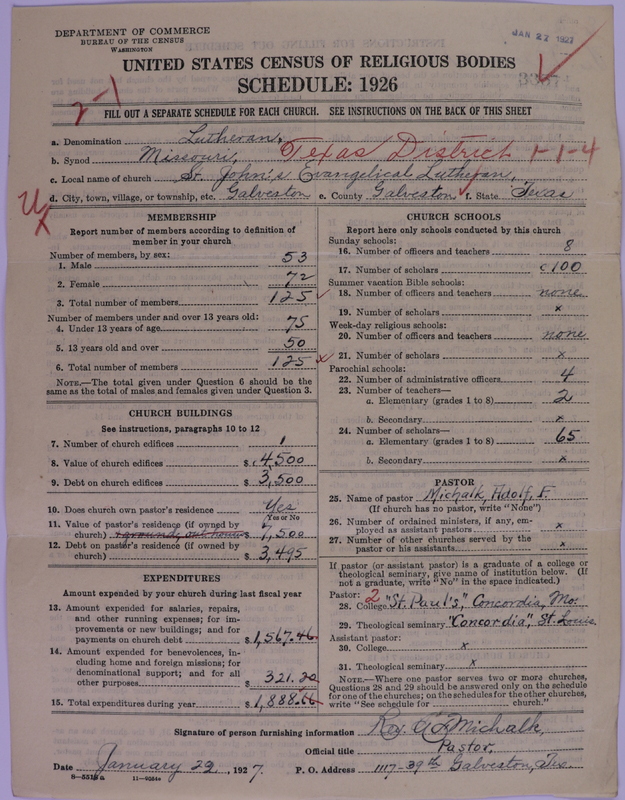 DEPARTMENT OF COMMERCE
BUREAU OF THE CENSUS
WASHINGTON
JAN 27 1927
UNITED STATES CENSUS OF RELIGIOUS BODIES
SCHEDULE: 1926
2-1
FILL OUT A SEPARATE SCHEDULE FOR EACH CHURCH. SEE INSTRUCTIONS ON THE BACK OF THIS SHEET
a. Denomination Lutheran,
b. Synod Missouri, Texas District 1-1-4
c. Local name of church St. John's Evangelical Lutheran,
d. City, town, village, or township, etc. Galveston e. County Galveston f. State Texas
MEMBERSHIP
Report number of members according to definition of
member in your church
Number of members, by sex:
1. Male 53
2. Female 72
3. Total number of members 125
Number of members under and over 13 years old:
4. Under 13 years of age 75
5. 13 years old and over 50
6. Total number of members 125
NOTE.—The total given under Question 6 should be the
same as the total of males and females given under Question 3.
CHURCH BUILDINGS
See instructions, paragraphs 10 to 12
7. Number of church edifices 1
8. Value of church edifices $ 4,500
9. Debt on church edifices $ 3,500
10. Does church own pastor's residence Yes
Yes or No
11. Value of pastor's residence (if owned by
church) $ 7,500
12. Debt on pastor's residence (if owned by
church) $ 3,495
EXPENDITURES
Amount expended by your church during last fiscal year
13. Amount expended for salaries, repairs,
and other running expenses; for im-
provements or new buildings; and for
payments on church debt $ 1,567.46
14. Amount expended for benevolences, in-
cluding home and foreign missions; for
denominational support; and for all
other purposes $ 321.20
15. Total expenditures during year $ 1,888.66
CHURCH SCHOOLS
Report here only schools conducted by this church
Sunday schools:
16. Number of officers and teachers 8
17. Number of scholars c100
Summer vacation Bible schools:
18. Number of officers and teachers none
19. Number of scholars x
Week-day religious schools:
20. Number of officers and teachers none
21. Number of scholars x
Parochial schools:
22. Number of administrative officers 4
23. Number of teachers—
a. Elementary (grades 1 to 8) 2
b. Secondary x
24. Number of scholars—
a. Elementary (grades 1 to 8) 65
b. Secondary x
PASTOR
25. Name of pastor Michalk, Adolf, F.
(If church has no pastor, write "None")
26. Number of ordained ministers, if any, em-
ployed as assistant pastors x
27. Number of other churches served by the
pastor or his assistants x
If pastor (or assistant pastor) is a graduate of a college or
theological seminary, give name of institution below. (If
not a graduate, write "No" in the space indicated.)
Pastor: 2
28. College "St. Paul's", Concordia, Mo.
29. Theological seminary "Concordia", St. Louis
Assistant pastor:
30. College x
31. Theological seminary x
NOTE.—Where one pastor serves two or more churches,
Questions 28 and 29 should be answered only on the schedule
for one of the churches; on the schedules for the other churches,
write "See schedule for church."
Signature of person furnishing information Rev. A F Michalk,
Official title Pastor.
Date January 22, 1927. P. O. Address 1117-39th Galveston, Tex.
8-5519a 11-9054